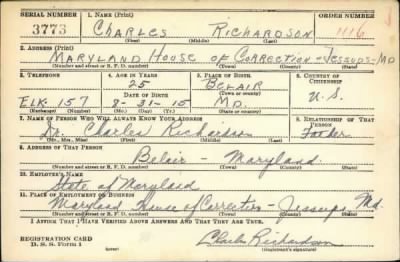 SERIAL NUMBER 1. NAME (Print) ORDER NUMBER
3773 CHARLES RICHARDSON 1116
(First) (Middle) (Last)
2. ADDRESS (Print)
MARYLAND HOUSE OF CORRECTION - JESSUPS - MD
(Number and street or R. F. D. number) (Town) (County) (State)
3. TELEPHONE 4. AGE IN YEARS 5. PLACE OF BIRTH 6. COUNTRY OF CITIZENSHIP
25 BELAIR
DATE OF BIRTH (Town or county)
ELK. 157 8-21-15 MD. U.S.
(Exchange) (Number) (Mo.) (Day) (Yr.) (State or country)
7. NAME OF PERSON WHO WILL ALWAYS KNOW YOUR ADDRESS 8. RELATIONSHIP OF THAT PERSON
Dr. Charles Richardson Father
(Mr., Mrs., Miss) (First) (Middle) (Last)
9. ADDRESS OF THAT PERSON
Belair - Maryland
(Number and street or R. F. D. number) (Town) (County) (State)
10. EMPLOYER'S NAME
State of Maryland
11. PLACE OF EMPLOYMENT OR BUSINESS
Maryland House of Correction - Jessups, Md.
(Number and street or R. F. D. number) (Town) (County) (State)
I AFFIRM THAT I HAVE VERIFIED ABOVE ANSWERS AND THAT THEY ARE TRUE.
REGISTRATION CARD
D. S. S. Form 1 Charles Richardson
(Registrant's signature)